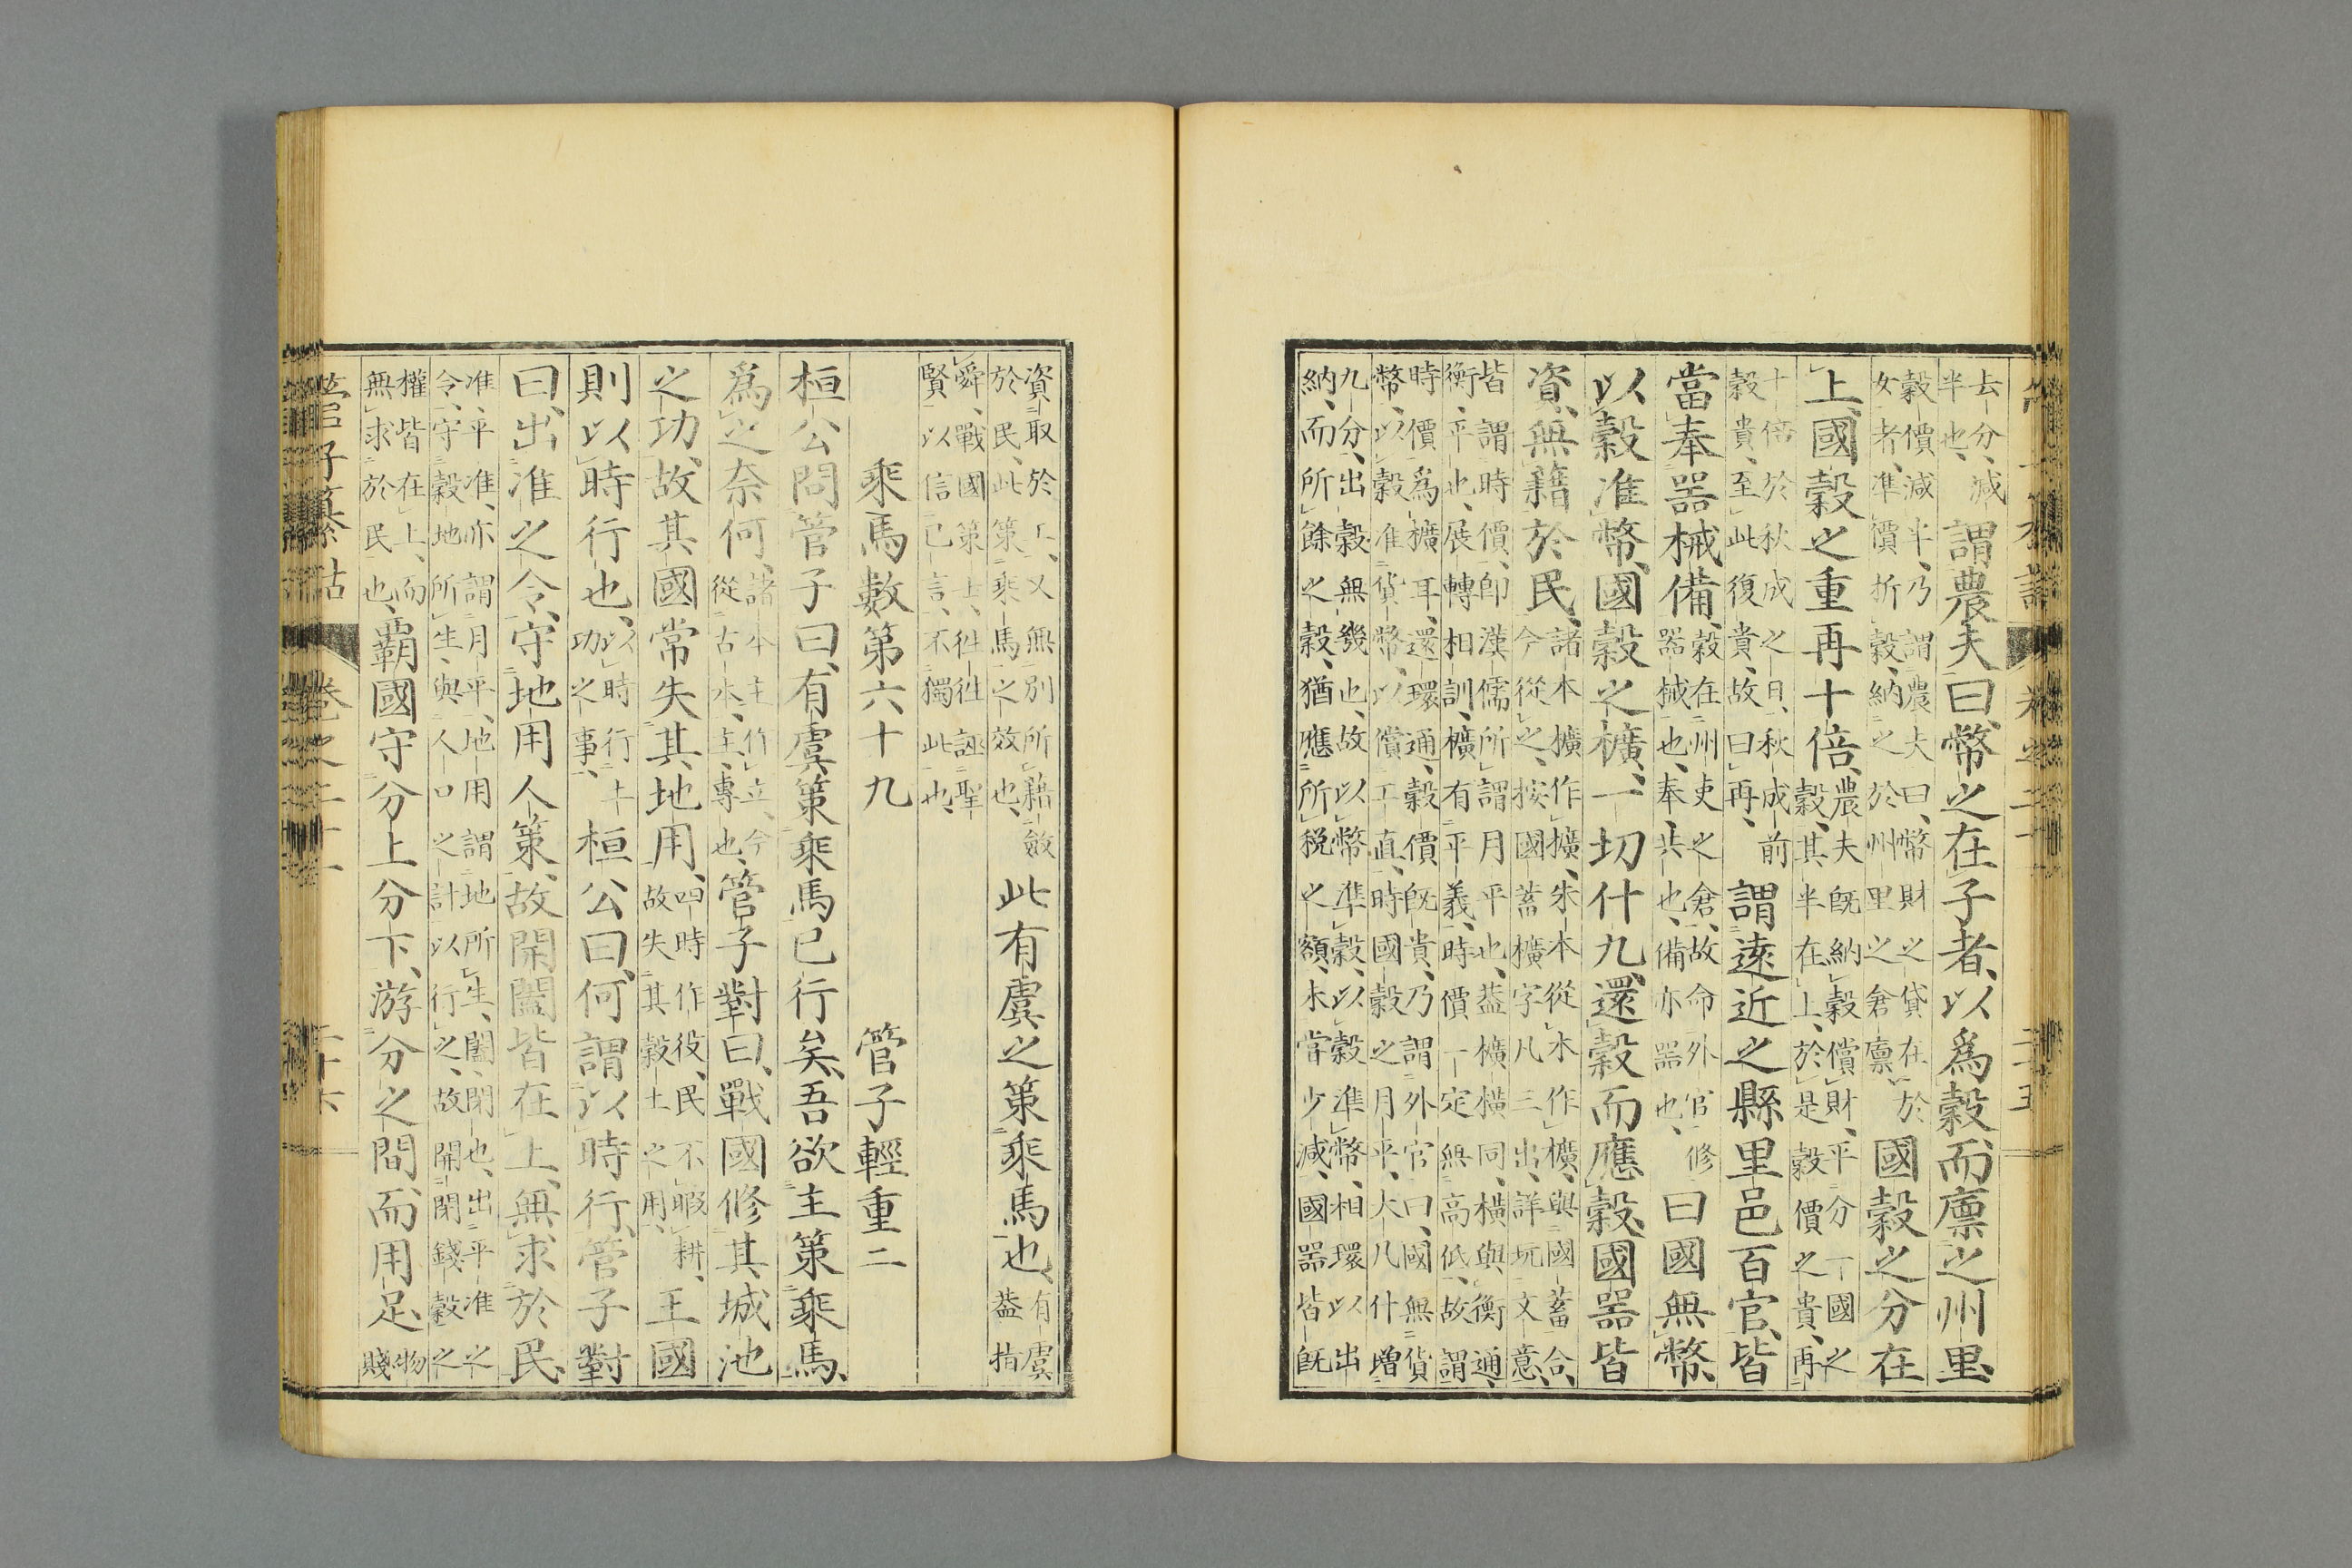 去分、減
半也、
謂農夫曰、幣之在子者、以爲穀、而廩之州里、
穀價減半、乃謂農夫曰、幣財之貸在於
女者、準價折穀、納之於州里之倉廩、
國穀之分在
上、國穀之重再十倍、
農夫既納穀償財、平分一國之
穀、其半在上、於是穀價之貴、再
十倍於秋成之日、秋成前
穀貴、至此復貴、故曰再、
謂遠近之縣里邑百官、皆
當奉器械備、
穀在州吏之倉、故命外官修
器械也、奉、共也、備亦器也、
曰國無幣、
以穀准幣、國穀之櫎、一切什九、還穀而應穀、國器皆
資、無籍於民、
諸本櫎作擴、朱本從木作櫎、與國蓄合、
今從之、按國蓄櫎字凡三出、詳玩文意、
皆謂時價、卽漢儒所謂月平也、蓋櫎橫同、橫與衡通、
衡、平也、展轉相訓、櫎有平義、時價一定無高低、故謂
時價爲櫎耳、還環通、穀價既貴、乃謂外官曰、國無貨
幣、以穀准貨幣、以償工直、時國穀之月平、大凡什增
九分、出穀無幾也、故以幣準穀、以穀準幣、相環以出
納、而所餘之穀、猶應所稅之額、未嘗少減、國器皆既
資取於工、又無別所籍斂
於民、此策乘馬之效也、
此有虞之策乘馬也、
有虞
蓋指
舜、戰國策士、往往誣聖
賢以信己言、不獨此也、
乘馬數第六十九 管子輕重二
桓公問管子曰、有虞策乘馬已行矣、吾欲主策乘馬、
爲之奈何、
諸本主作立、今
從古本、主、專也、
管子對曰、戰國修其城池
之功、故其國常失其地用、
四時作役、民不暇耕、
故失其穀土之用、
王國
則以時行也、
以時行土
功之事、
桓公曰、何謂以時行、管子對
曰、出准之令、守地用人策、故開闔皆在上、無求於民、
准、平准、亦謂月平、地用謂地所生、闔、閉也、出平准之
令、守穀地所生、與人口之計以行之、故開閉錢穀之
權皆在上、而
無求於民也、
霸國守分上分下、游分之間、而用足、
物
賤
管子纂詁 卷之二十一 二十六